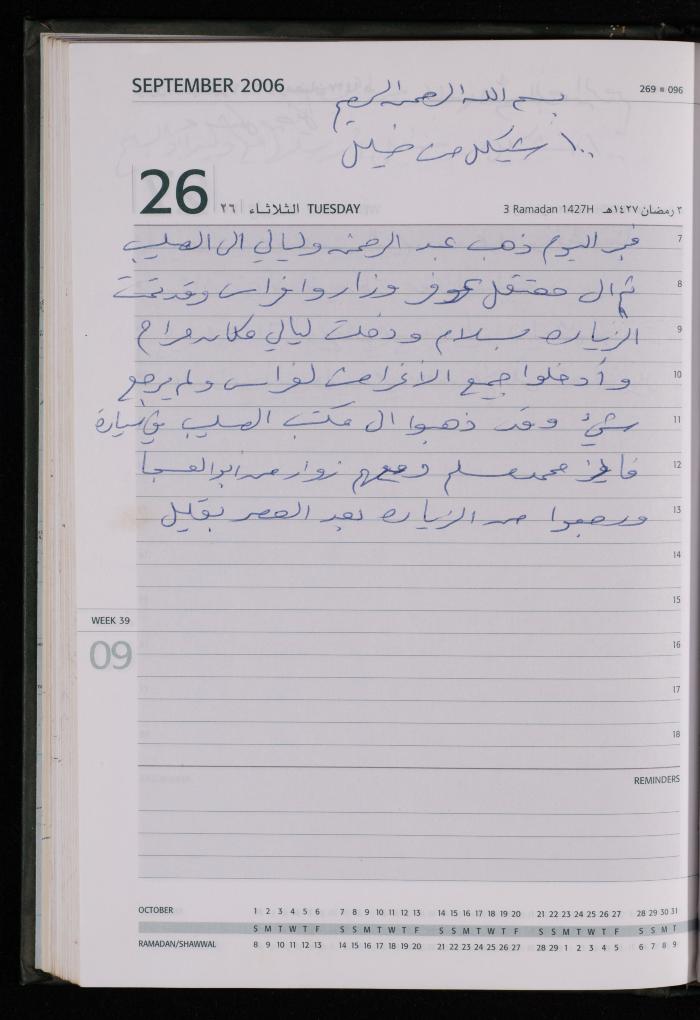 SEPTEMBER 2006
269 ■ 096
بسم الله الرحمن الرحيم
١٠٠ شيكل من خليل
26 ٢٦ الثلاثاء TUESDAY
3 Ramadan 1427H ٣ رمضان ١٤٢٧هـ
7 فجر اليوم ذهب عبد الرحمن وليالي الى الصليب
8 ثم ال معتقل عوفر وزاروا فراس وقد تمت
9 الزياره بسلام ودخلت ليالي مكان مراح
10 وأدخلوا جميع الأغراض لفراس ولم يرجع
11 شيئ وقد ذهبوا ال مكتب الصليب في سيارة
12 فايز محمد مسلم ومعهم زوار من أبو العسجا
13 ورجعوا من الزياره بعد العصر بقليل
14
15
WEEK 39
16
09
17
18
REMINDERS
OCTOBER 1 2 3 4 5 6 7 8 9 10 11 12 13 14 15 16 17 18 19 20 21 22 23 24 25 26 27 28 29 30 31
S M T W T F S S M T W T F S S M T W T F S S M T W T F S S M T
RAMADAN/SHAWWAL 8 9 10 11 12 13 14 15 16 17 18 19 20 21 22 23 24 25 26 27 28 29 1 2 3 4 5 6 7 8 9